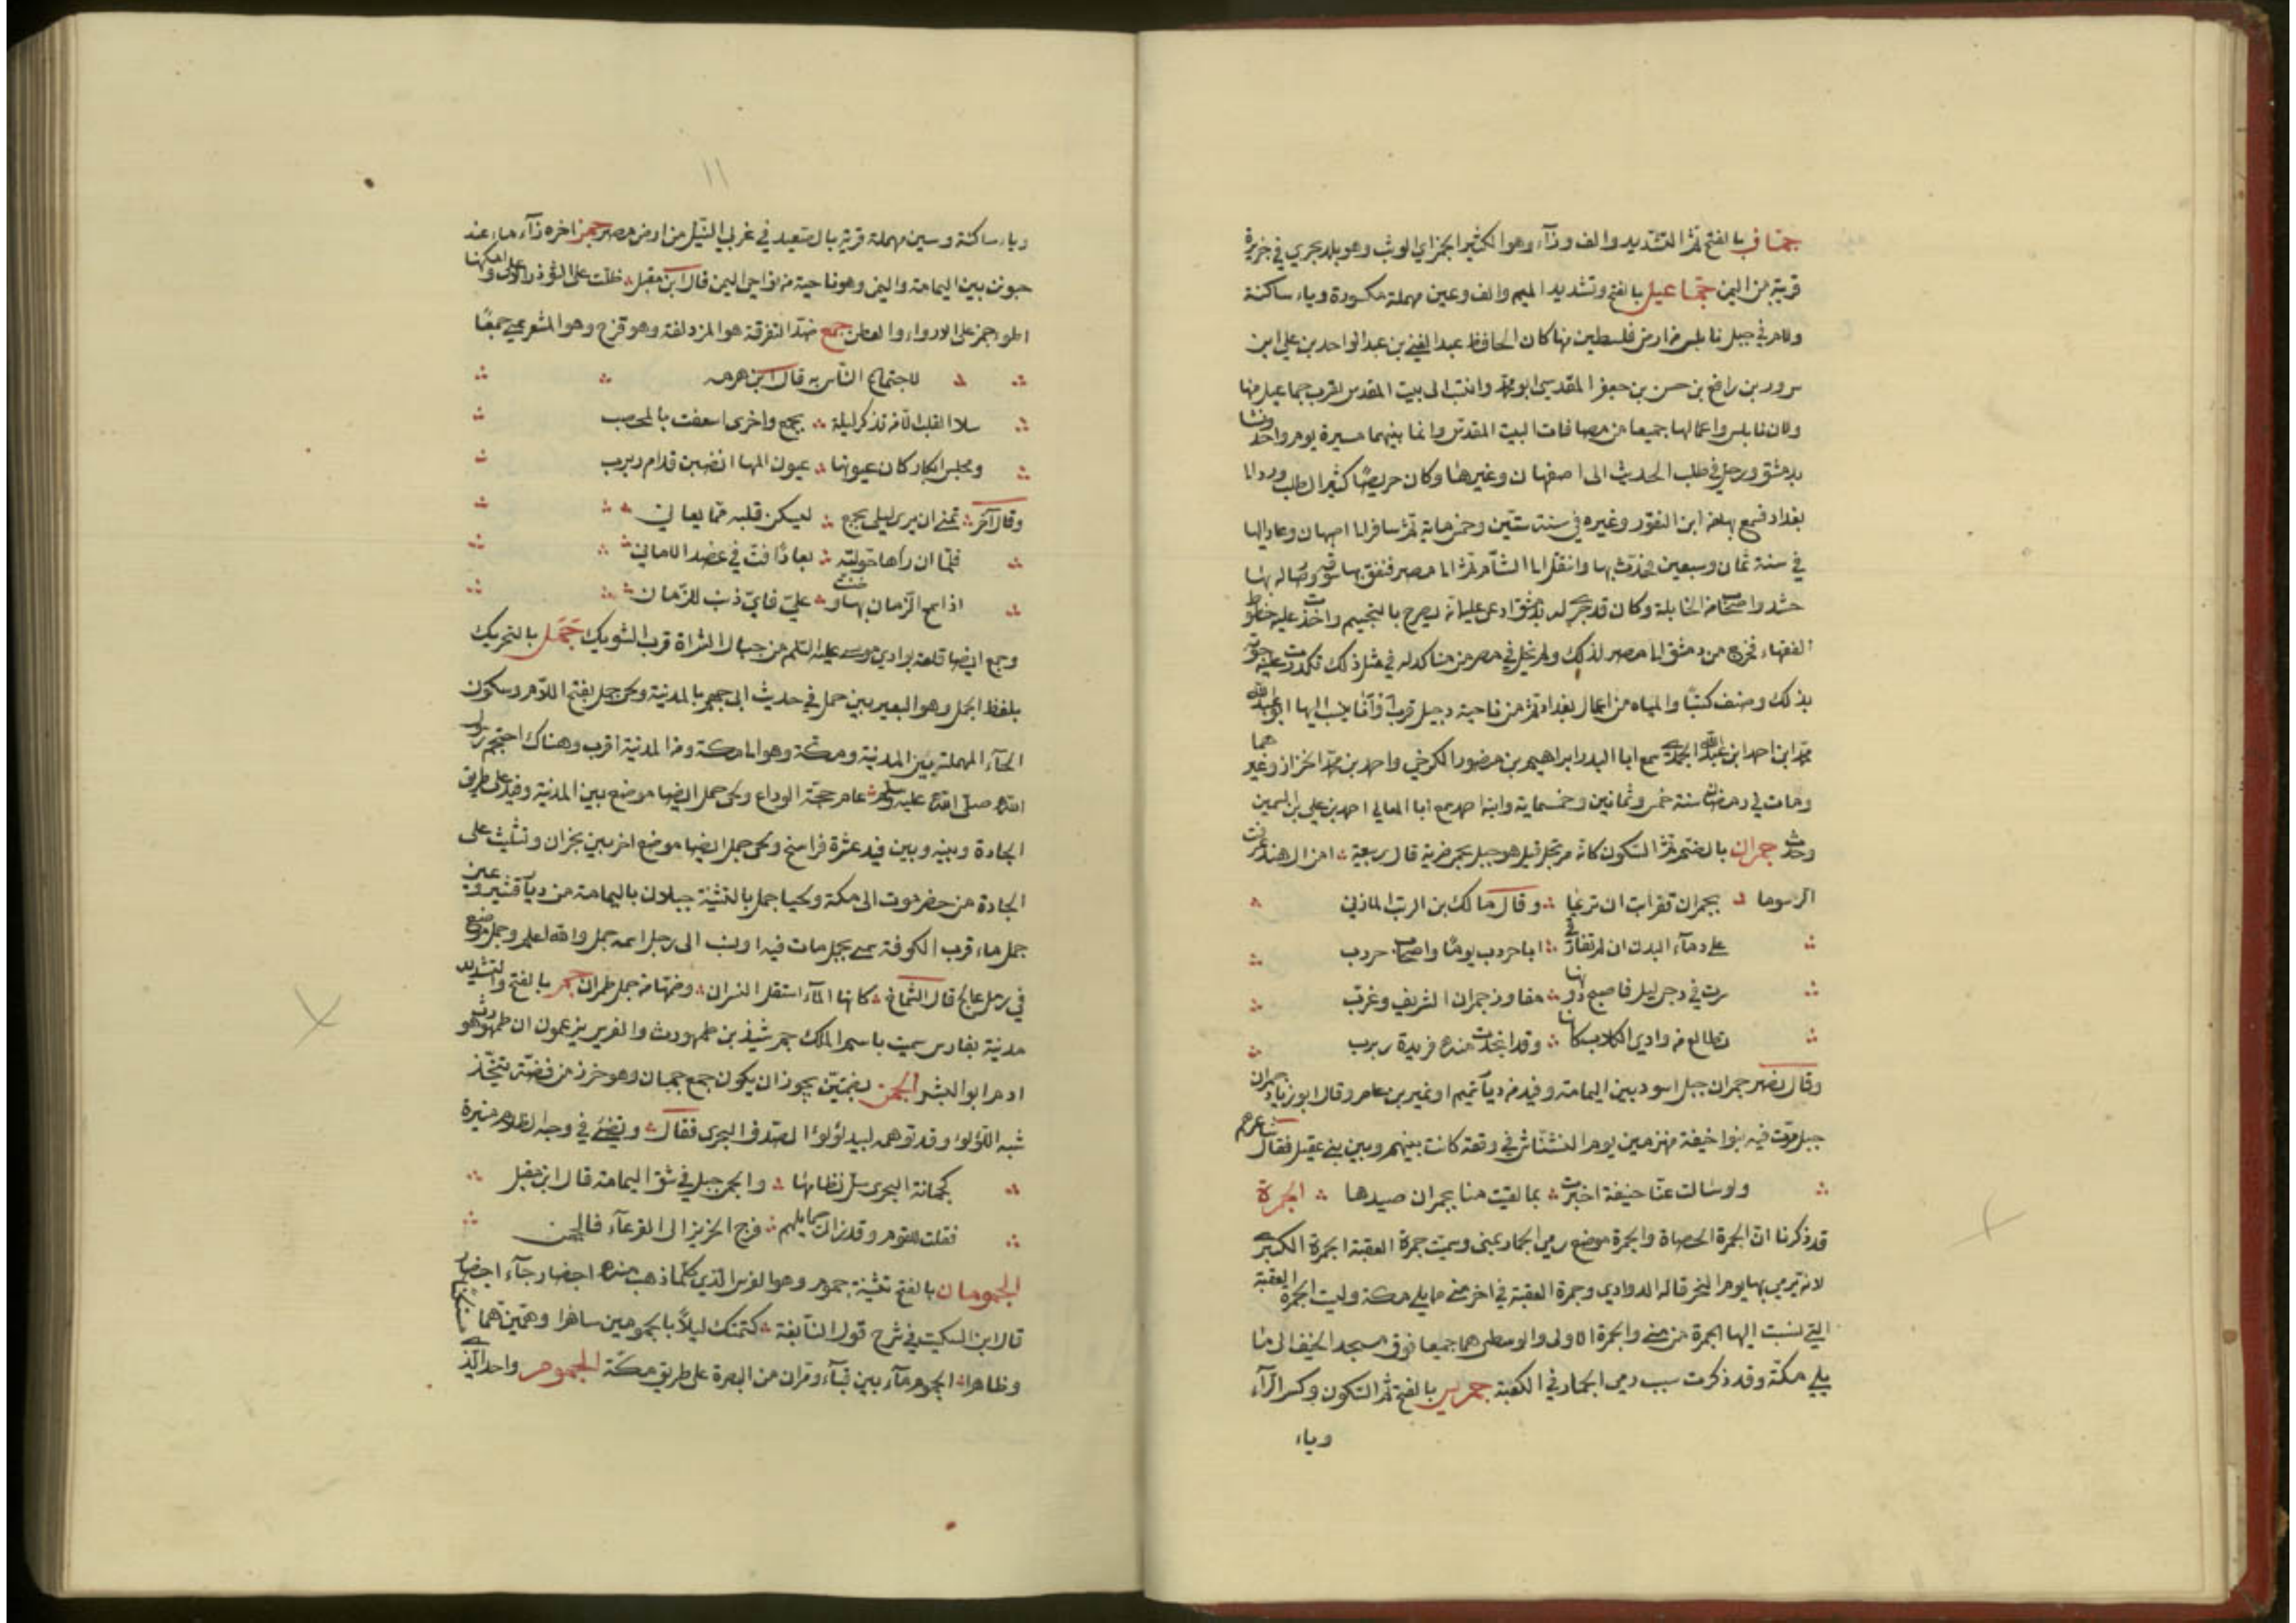 جمّاز بالفتح ثمّ التشديد والف وزآء وهو الكثير الجمز اي الوثب وهو بلد بحري في جزيرة
قريبة من اليمن جمّاعيل بالفتح وتشديد الميم والف وعين مهملة مكسورة وياء ساكنة
ولام في جبل نابلس من ارض فلسطين منها كان الحافظ عبد الغني بن عبد الواحد بن علي ابن
سرور بن رافع بن حسن بن جعفر المقدسي ابو محمّد وانتسب الى بيت المقدس لقرب جماعيل منها
ولان نابلس واعمالها جميعا من مضافات البيت المقدس وانما بينهما مسيرة يوم واحد ونشا
بدمشق ورحل في طلب الحديث الى اصفهان وغيرها وكان حريصًا كثير الطلب ورد انا
بغداد فسمع بها من ابن النقور وغيره في سنة ستّين وخمس ماية ثمّ سافر انا اصبهان وعاد اليها
في سنة ثمان وسبعين فحدّث بها وانتقل انا الشام ثمّ انا مصر فنفق بها سوقه وصار له بها
حشد واصحاب من الحنابلة وكان قد جرى له بدمشق ادعي عليه انه يصرح بالتجسيم واخذت عليه خطوط
الفقهاء فخرج من دمشق انا مصر لذلك ولم يخل في مصر من مناكد له في مثل ذلك تكدرت عليه حيوته
بذلك وصنف كتبًا والمياه من اعمال بغداد ثمّ من ناحية دجيل قرب اوانا ينسب اليها ابو عبد الله
محمّد ابن احمد ابن عبد الله الجمدي سمع ابا البدر ابراهيم بن منصور الكرخي واحمد بن محمّد الخزاز وغيرهما
ومات في رمضان سنة خمس وثمانين وخمسماية وابنه احمد سمع ابا المعالي احمد بن علي بن السمين
وحدّث جمران بالضمّ ثمّ السكون كانّه مرتجل قيل هو جبل بحمى ضرية قال ربيعة امن آل هند عرفت
الرسوما بجمران قفرا ابت ان تريما وقال مالك بن الريب المازني
على دمآء البدن ان لم تفارقي ابا حردب يومًا واصحاب حردب
سرت في دجى ليل فاصبح دونها مفاوز جمران الشريف وغرّب
تطالع من وادي الكلاب كانها وقد انجدت منه فريدة ربرب
وقال نصر جمران جبل اسود بين اليمامة وفيد من ديار تميم او نمير بن عامر وقال ابو زياد جمران
جبل مرّت فيه بنو حنيفة منهزمين يوم النشناش في وقعة كانت بينهم وبين بني عقيل فقال شاعرهم
ولو سالت عنّا حنيفة اخبرت بما لقيت منا بجمران صيدها الجمرة
قد ذكرنا انّ الجمرة الحصاة والجمرة موضع رمي الجمار بمنى وسميت جمرة العقبة الجمرة الكبرى
لانه يرمي بها يوم النحر قاله الداودي وجمرة العقبة في اخر منى مما يلي مكة وليست العقبة
التي نسبت اليها الجمرة من منى والجمرة الاولى والوسطى هما جميعا فوق مسجد الخيف الى ما
يلي مكّة وقد ذكرت سبب رمي الجمار في الكعبة جمريس بالفتح ثمّ السكون وكسر الرّآء
وياء
١١
وياء ساكنة وسين مهملة قرية بالصعيد في غربي النّيل من ارض مصر جمز اخره زآء ماء عند
حبوتن بين اليمامة واليمن وهو ناحية من نواحي اليمن قال ابن مقبل ظلّت على الشوذر الاعلى وامكنها
اطواء جمز على الارواء والعطن جمع ضدّ التفرقة هو المزدلفة وهو قزح وهو المشعر سمّي جمعًا
لاجتماع النّاس به قال ابن هرمه
سلا القلب الّا من تذكر ليلة بجمع واخرى اسعفت بالمحصب
ومجلس ابكار كان عيونها عيون المها انضين قدام ربرب
وقال آخر تمنّى ان يرى ليلى بجمع ليسكن قلبه ممّا يعاني
فلمّا ان رآها خولته بعادًا فتّ في عضد الاماني
اذا سمح الزّمان بها وضنت عليّ فايّ ذنب للزّمان
وجمع ايضا قلعة بوادي موسى عليه السّلم من جبال الشراة قرب الشوبك جمل بالتحريك
بلفظ الجمل وهو البعير بين جمل في حديث ابي جهيم بالمدينة ولحى جمل بفتح اللّام وسكون
الحآء المهملة بين المدينة ومكّة وهو انا مكة ومن المدينة اقرب وهناك احتجم رسول
الله صلّى الله عليه وسلّم عام حجّة الوداع ولحى جمل ايضا موضع بين المدينة وفيد على طريق
الجادة وبينه وبين فيد عشرة فراسخ ولحى جمل ايضا موضع اخر بين نجران وتثليث على
الجادة من حضرموت الى مكة ولحيا جمل بالتثنية جبلان باليمامة من ديار قشير وعين
جمل ماء قرب الكوفة سمي بجمل مات فيه او نسب الى رجل اسمه جمل والله اعلم وجمل موضع
في رمل عالج قال الشمّاخ كانها لمّا استقل النسران وضمّها من جمل طمران جمّ بالفتح والتشديد
مدينة بفارس سميت باسم الملك جم شيذ بن طمهورث والفرس يزعمون ان طمهورث هو
ادم ابو البشر الجمن بضمتين يجوز ان يكون جمع جمان وهو خرز من فضّة يتّخذ
شبه اللّؤلؤ وقد توهمه لبيد لؤلؤ الصدف البحري فقال وتضيء في وجه الظلام منيرة
كجمانة البحري سلّ نظامها والجمن جبل في شق اليمامة قال ابن مقبل
فقلت للقوم وقد زالت حمايلهم فرج الحزيز الى القرعآء فالجمن
الجمومان بالفتح تثنية جموم وهو الفرس الذي كلّما ذهب منه احضار جآء احضار
قال ابن السكيت في شرح قول النّابغة كتمتك ليلًا بالجمومين ساهرا وهمّين همّا مستكنّا
وظاهرا الجموم مآء بين قبآء ومرّان من البصرة على طريق مكّة الجموم واحد الّذي